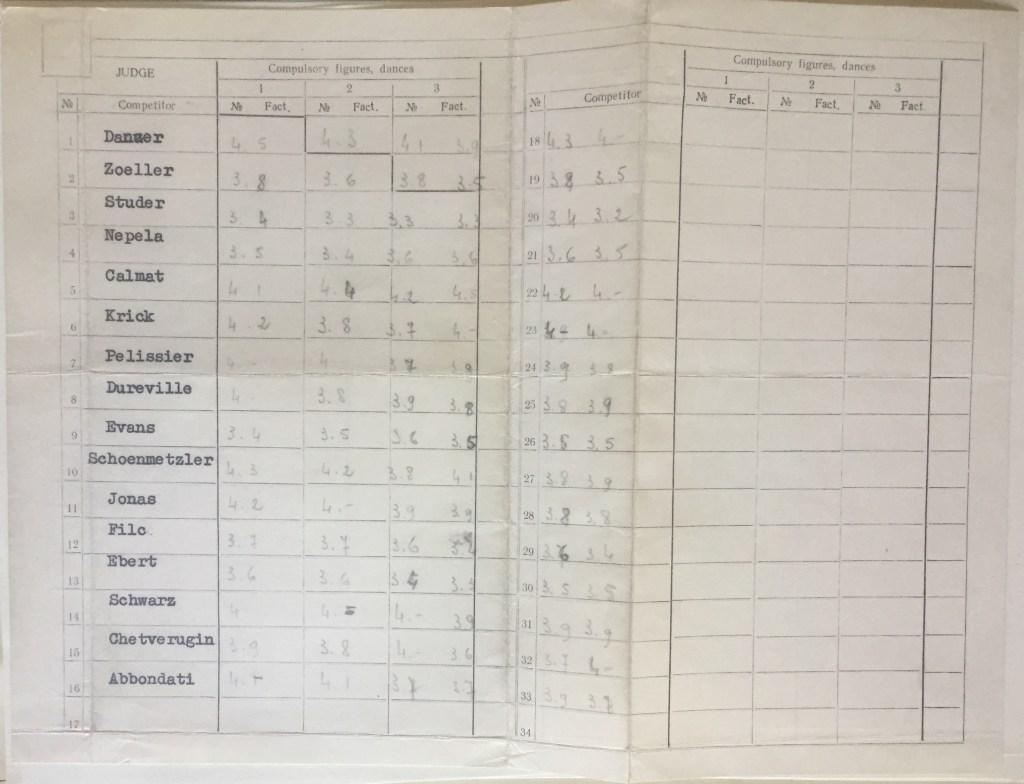 JUDGE Compulsory figures, dances Compulsory figures, dances
1 2 3 1 2 3
№ Competitor № Fact. № Fact. № Fact. № Competitor № Fact. № Fact. № Fact.
1 Danzer 4.5 4.3 4.1 3.9 18 4.3 4.-
2 Zoeller 3.8 3.6 3.8 3.5 19 3.8 3.5
3 Studer 3.4 3.3 3.3 3.3 20 3.4 3.2
4 Nepela 3.5 3.4 3.6 3.6 21 3.6 3.5
5 Calmat 4.1 4.4 4.2 22 4.2 4.-
6 Krick 4.2 3.8 3.7 4.- 23 4.-
7 Pelissier 4.- 4 3.7 3.9 24 3.9 3.8
8 Dureville 4. 3.8 3.9 3.8 25 3.8 3.9
9 Evans 3.4 3.5 3.6 3.5 26 3.5 3.5
10 Schoenmetzler 4.3 4.2 3.8 4.1 27 3.8 3.9
11 Jonas 4.2 4.- 3.9 3.9 28 3.8 3.8
12 Filc 3.7 3.7 3.6 29 3.6 3.4
13 Ebert 3.6 3.6 3.4 3.3 30 3.5 3.5
14 Schwarz 4 4.- 4.- 3.9 31 3.9 3.9
15 Chetverugin 3.9 3.8 4.- 3.6 32 3.7 4.-
16 Abbondati 4.- 4.1 3.7 3.7 33 3.9 3.7
17 34